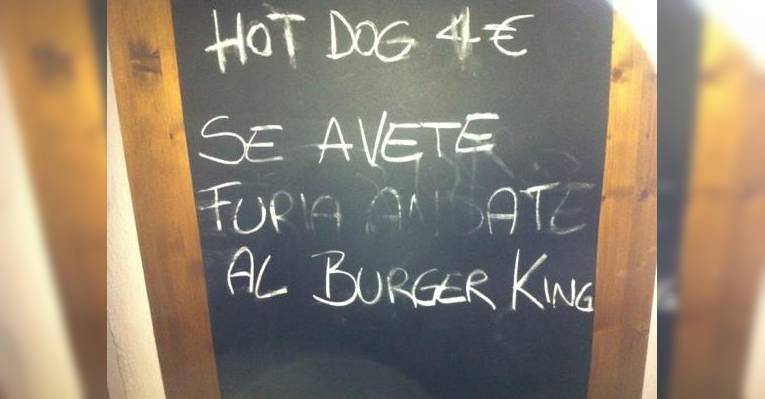 HOT DOG 4 €
SE AVETE
FURIA ANDATE
AL BURGER KING